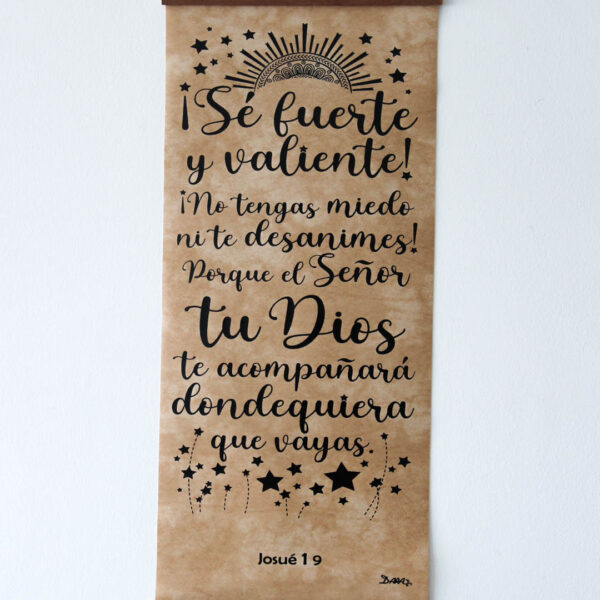 ¡Sé fuerte
y valiente!
¡No tengas miedo
ni te desanimes!
Porque el Señor
tu Dios
te acompañará
dondequiera
que vayas.
Josué 1 9